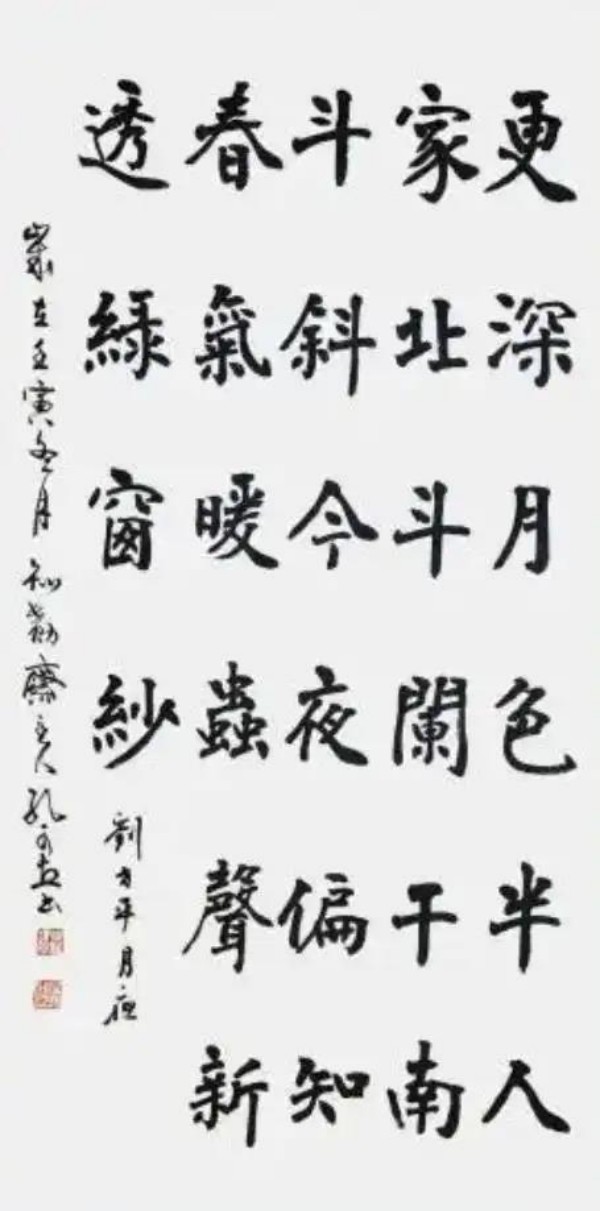 更深月色半人
家北斗闌干南
斗斜今夜偏知
春氣暖蟲聲新
透綠窗紗
劉方平月夜
歲在壬寅冬月知勤齋主人孔書